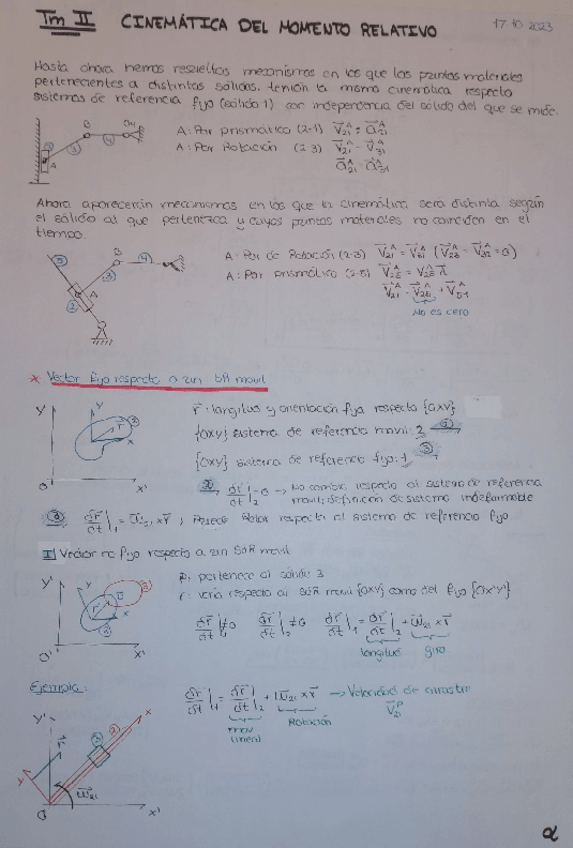 Tm II CINEMÁTICA DEL MOMENTO RELATIVO 17 10 2023
Hasta ahora hemos resueltos mecanismos en los que los puntos materiales
pertenecientes a distintos sólidos, tenían la misma cinemática respecto
sistemas de referencia fijo (sólido 1) con independencia del sólido del que se mide.
A: Par prismático (2-1)
A: Par Rotación (2-3)
B
A
Ahora aparecerán mecanismos en los que la cinemática será distinta según
el sólido al que pertenezca y cuyos puntos materiales no coinciden en el
tiempo.
A: Par de Rotación (2-3)
A: Par prismático
No es cero
B
A
* Vector fijo respecto a un SR movil
r⃗: longitud y orientación fija respecto {oxy}
{oxy} sistema de referencia movil: 2
{oxy} sistema de referencia fijo: 1
dr⃗/dt|₂ = 0 → No cambia respecto al sistema de referencia
movil; definición de sistema indeformable
dr⃗/dt|₁ = ω⃗₂₁ × r⃗ ; respecto al sistema de referencia fijo.
I Vector no fijo respecto a un SdR movil
P: pertenece al sólido 3
r: varía respecto al SdR movil {oxy} como del fijo {o'x'y'}
dr⃗/dt|₁ ≠ 0 dr⃗/dt|₂ ≠ 0 dr⃗/dt|₁ = dr⃗/dt|₂ + ω⃗₂₁ × r⃗
longitud giro
Ejemplo:
dr⃗/dt|₁ = dr⃗/dt|₂ + ω⃗₂₁ × r⃗ → Velocidad de arrastre
mov lineal Rotación
Y'
X'
α